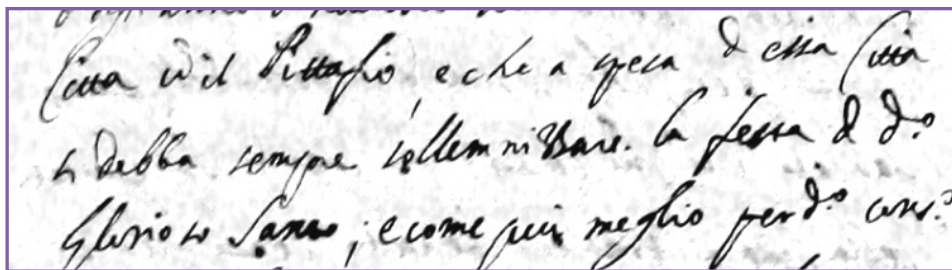 Citta con il Pittaffio, e che a spesa d essa Citta
si debba sempre sollemnizare. la festa d d.º
Glorioso Santo, e come più meglio per d.º cons.º